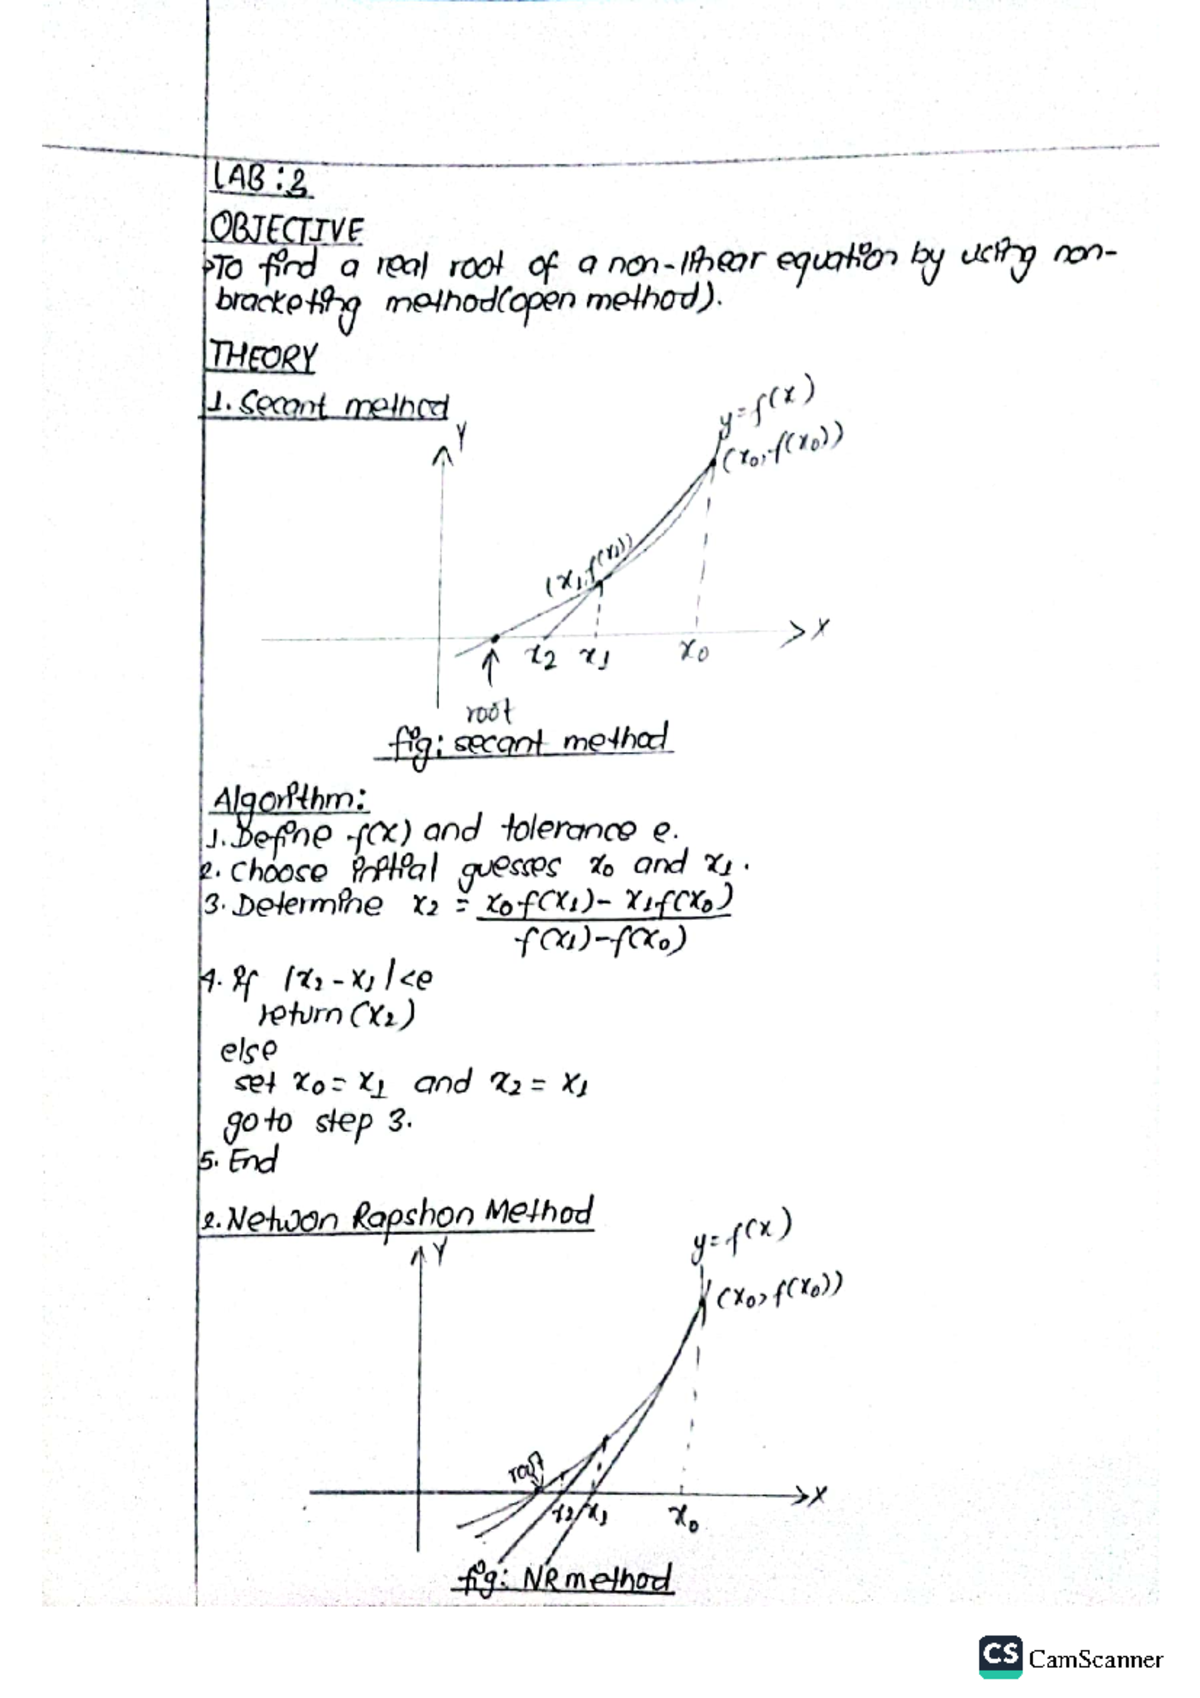 LAB: 3
OBJECTIVE
→To find a real root of a non-linear equation by using non-
bracketing method(open method).
THEORY
1. Secant method
Y
y=f(x)
(x0, f(x0))
(x1, f(x1))
X
x2 x1 x0
root
fig: secant method
Algorithm:
1. Define f(x) and tolerance e.
2. Choose initial guesses x0 and x1.
3. Determine x2 = x0f(x1)- x1f(x0)
f(x1)-f(x0)
4. If |x2-x1|<e
return(x2)
else
set x0= x1 and x2= x1
goto step 3.
5. End
2. Netwon Rapshon Method
Y
y=f(x)
(x0, f(x0))
root
X
x2 x1 x0
fig: NR method
CS CamScanner